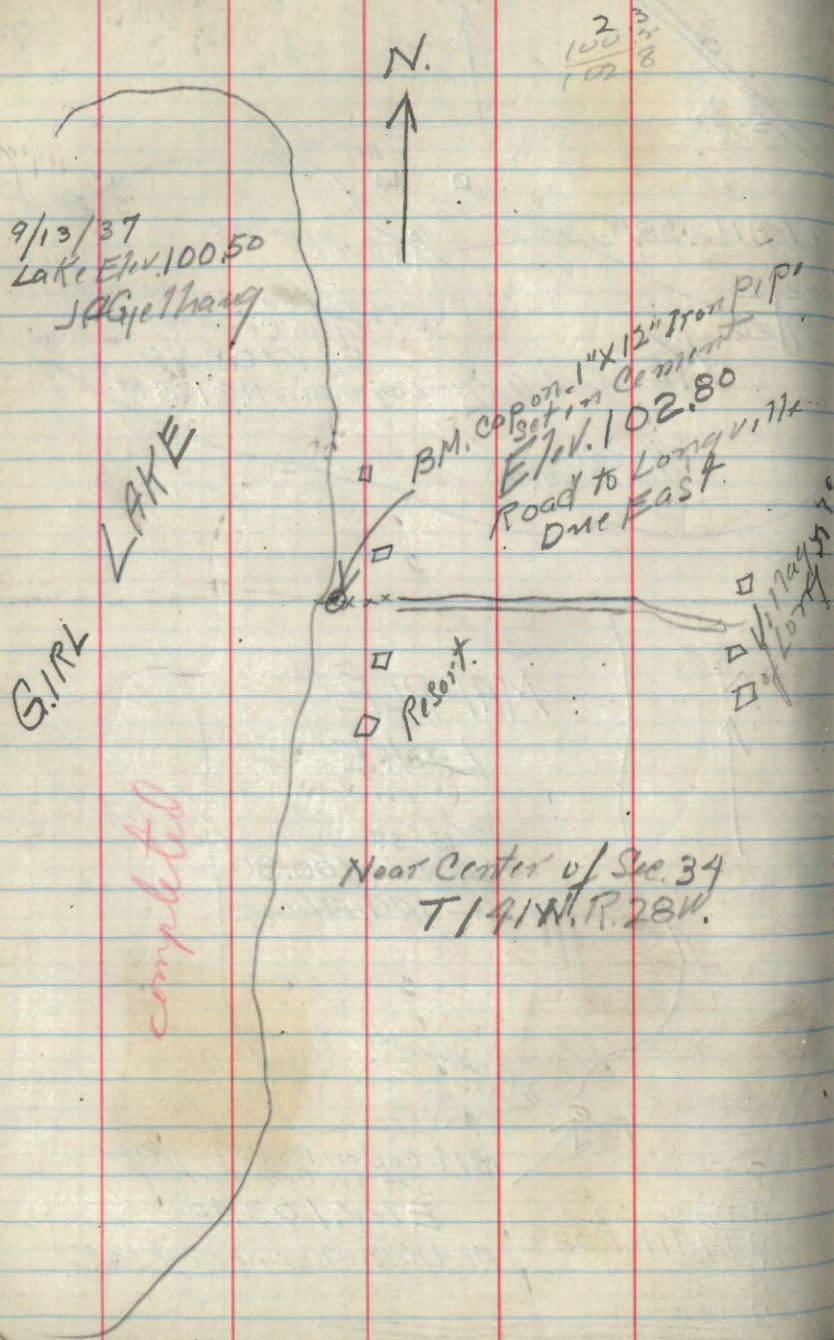 N.
2.3
100.5
102 8
9/13/37
Lake Elev. 100.50
BM. cap on 1"x12" Iron pipe
set in Cement
Elev. 102.80
Road to Longville
Due East
GIRL LAKE
Village
of Long
Resort.
completed
Near Center of Sec. 34
T141N. R.28W.